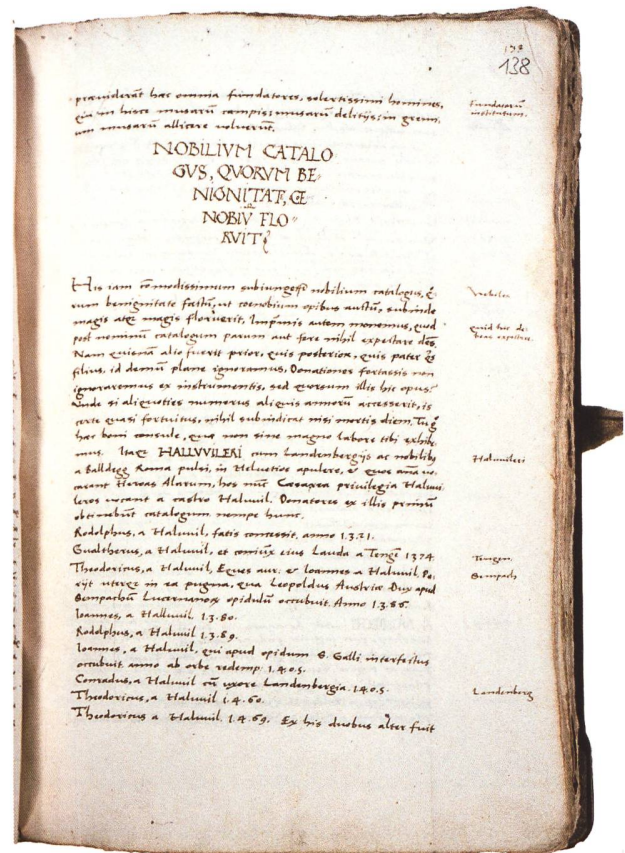 138
138
praeviderāt hac omnia fundatores, solertissimi homines,
qui in hisce musarū campis, musarū delitijs, in gremi,
um musarū allicere voluerūt.
fundatorū
institutum.
NOBILIVM CATALO
GVS, QVORVM BE-
NIGNITATE, CE
NOBIV FLO"
RVIT
His iam cōmodissimum subiungessē nobilium catalogus, q̄
rum benignitate factū, ut coenobium opibus auctū, subinde
magis atq magis floruerit, Imprimis autem monemus, quod
post nominū catalogum parum aut fere nihil expectare des
Nam quisnā alio fuerit prior, quis posterior, quis pater
filius, id demū plane ignoramus, Donationes fortassis non
ignoraremus ex instrumentis, sed quorsum illis hic opus?
Unde si aliquoties numerus aliquis annorū accesserit, is
certe quasi fortuitus, nihil subindicat nisi mortis diem. Tu
hac boni consule, qua non sine magno labore tibi exhibe
mus. Itaq HALLVVILERI cum Landenbergijs ac nobilib
a Balldegg Roma pulsi, in Helvetios apulere, et quos
carant Heroas Alarum, hos nūc Casarea privilegia Halwi
leros vocant a castro Halwil. Donatores ex illis primū
obtinebūt catalogum nempe hunc.
Nobiles
quid hic de
beas expectare.
Halwileri
Rodolphus, a Halwil, fatis concessit. anno 1.3.21.
Gualtherus, a Halwil, et coniūx eius Lauda a Tengē 1374
Theodoricus, a Halwil, Eques aur. et Ioannes a Halwil, Pe,
rijt uterq in ea pugna, qua Leopoldus Austriae Dux apud
Sempachū Lucernanox opidulū occubuit. Anno 1.3.86.
Ioannes, a Hallwil. 1.3.80.
Rodolphus, a Halwil 1.3.89.
Ioannes, a Halwil, qui apud opidum S. Galli interfectus
occubuit anno ab orbe redemp: 1.4.0.5.
Conradus, a Halwil cū uxore Landenbergia. 1.4.0.5.
Theodoricus, a Halwil 1.4.60.
Theodoricus a Halwil. 1.4.69. Ex his duobus alter fuit
Tengen.
Sempach
Landenberg